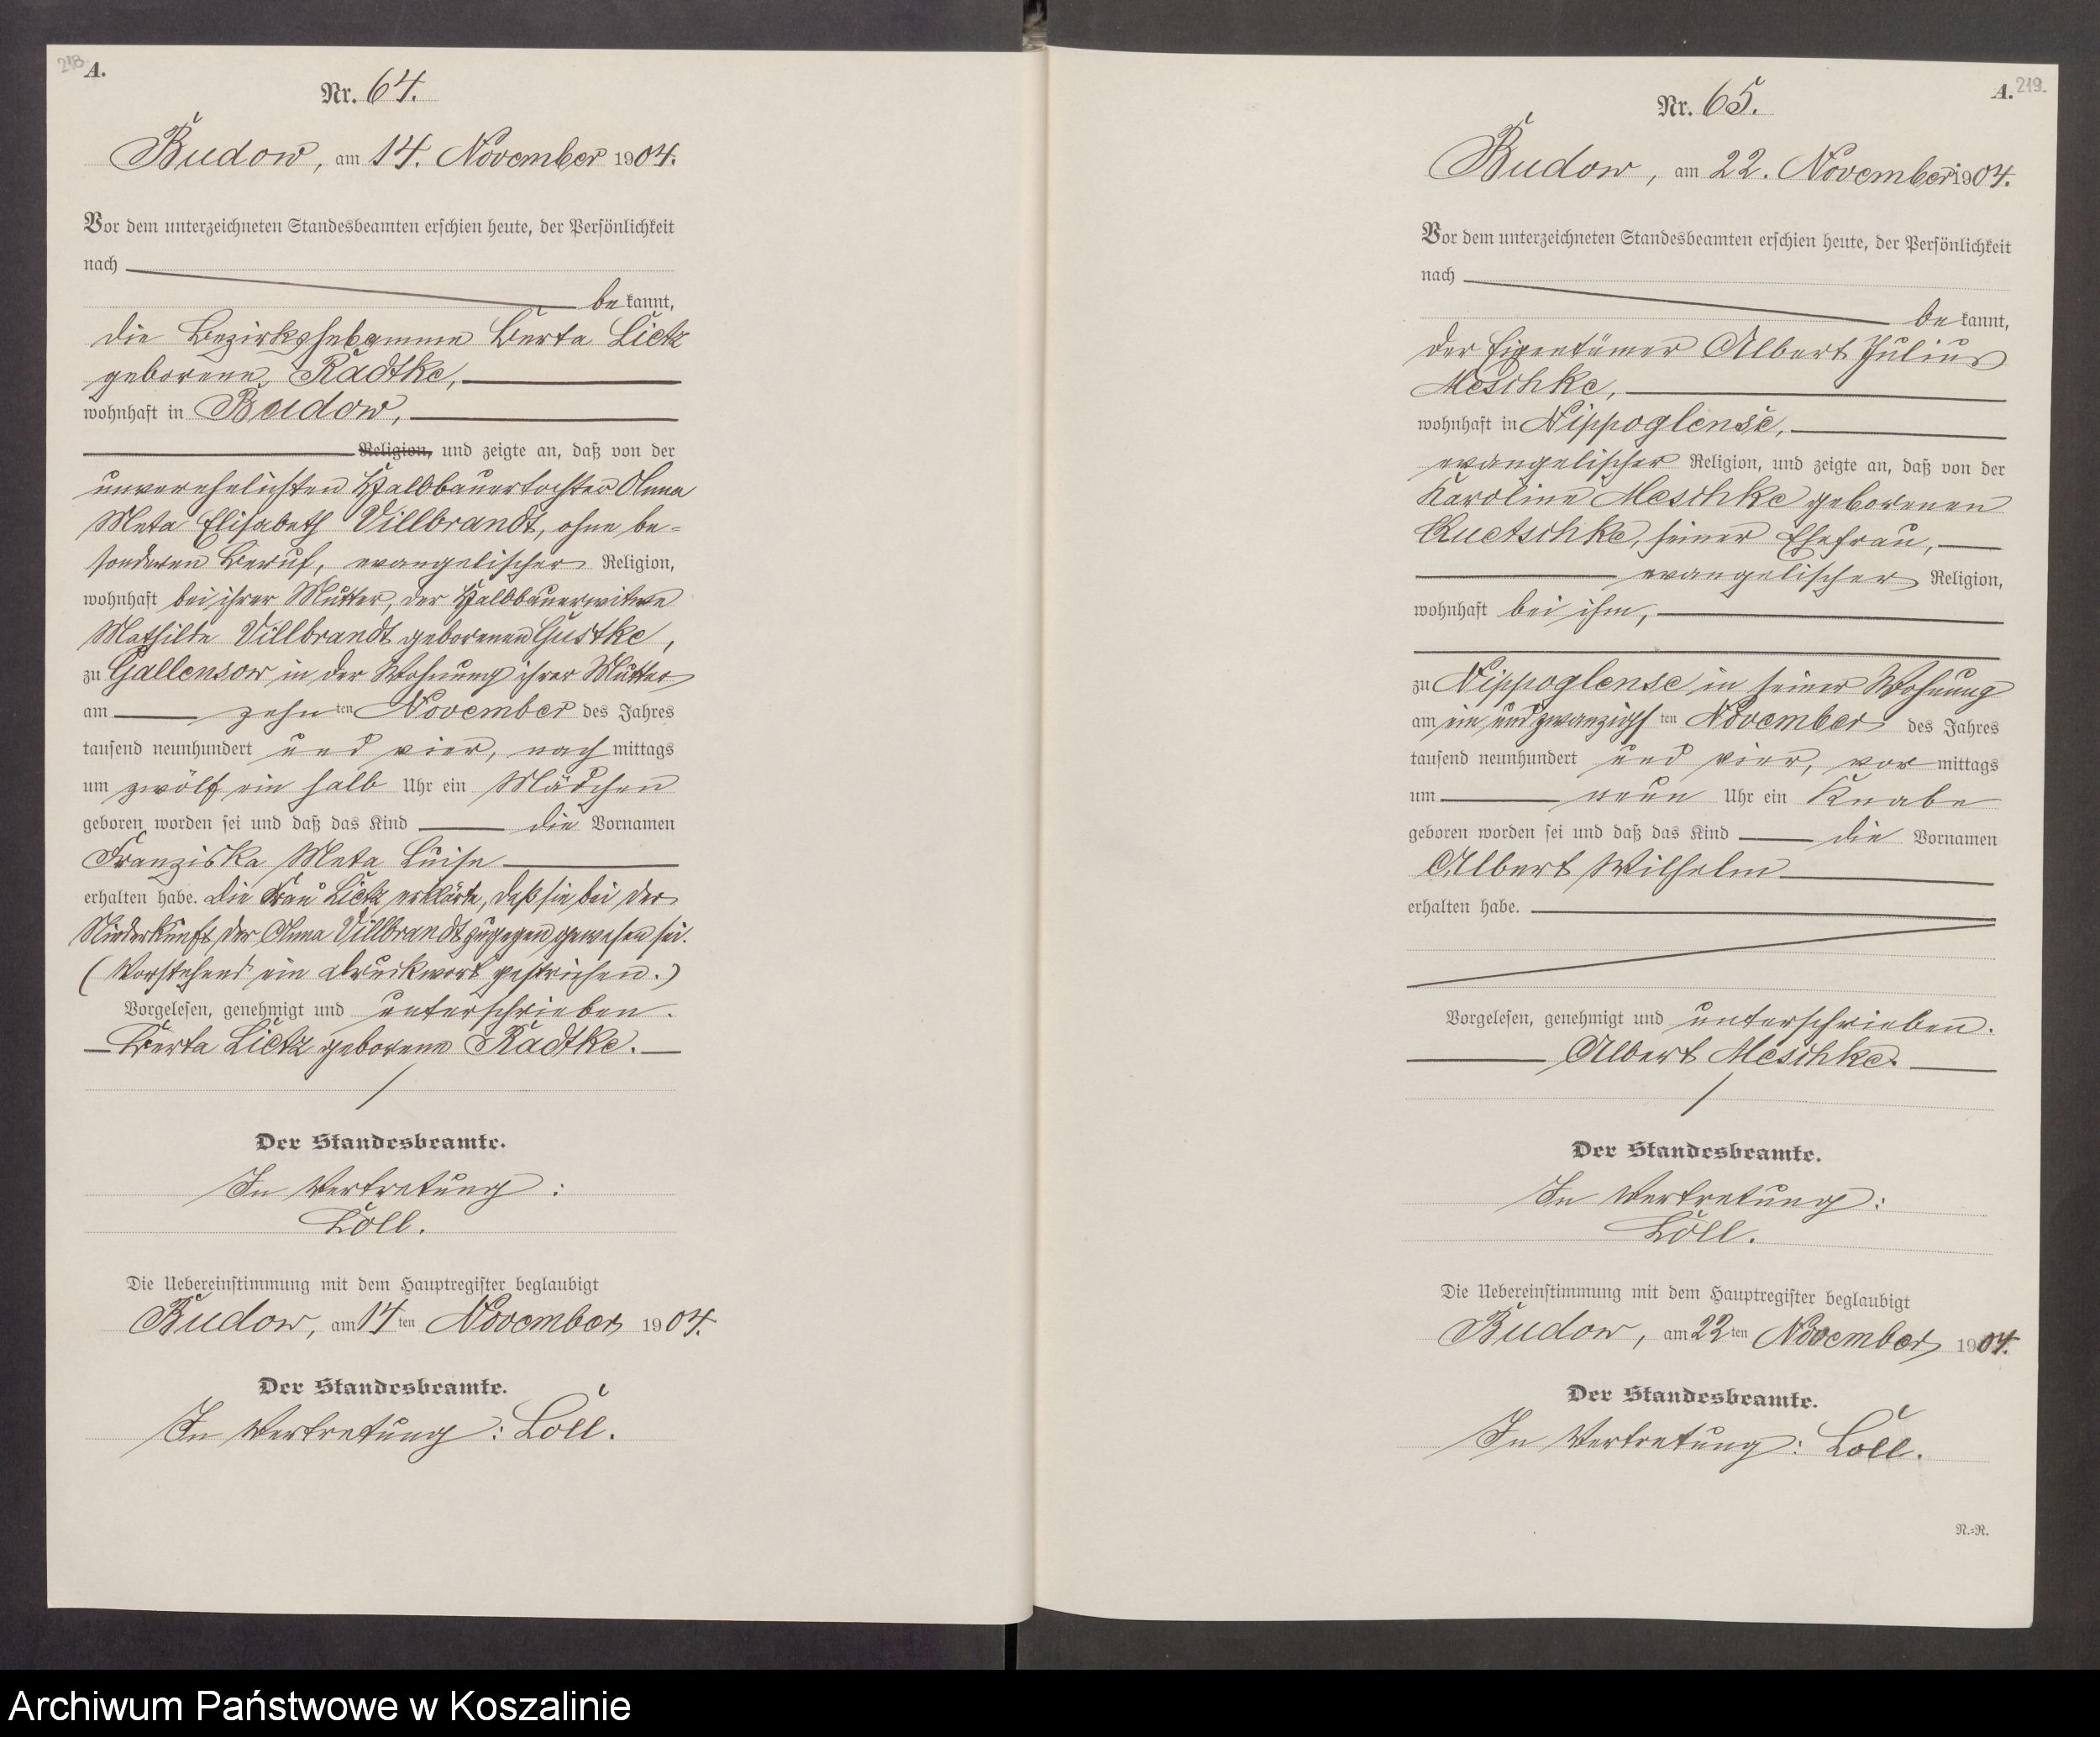 218.
A.
Nr. 64.
Budow, am 14. November 1904.
Vor dem unterzeichneten Standesbeamten erschien heute, der Persönlichkeit
nach
bekannt,
die Bezirkshebamme Berta Lietz
geborene Radtke,
wohnhaft in Budow,
Religion, und zeigte an, daß von der
unverehelichten Halbbauertochter Anna
Meta Elisabeth Villbrandt, ohne be-
sonderen Beruf, evangelischer Religion,
wohnhaft bei ihrer Mutter, der Halbbauerwitwe
Mathilde Villbrandt geborenen Gustke,
zu Gallensow in der Wohnung ihrer Mutter
am zehnten November des Jahres
tausend neunhundert und vier, nachmittags
um zwölf ein halb Uhr ein Mädchen
geboren worden sei und daß das Kind die Vornamen
Franziska Meta Luise
erhalten habe. Die Frau Lietz erklärte, daß sie bei der
Niederkunft der Anna Villbrandt zugegen gewesen sei.
(Vorstehend ein Druckwort gestrichen.)
Vorgelesen, genehmigt und unterschrieben.
Berta Lietz geborene Radtke.
Der Standesbeamte.
In Vertretung:
Loll.
Die Uebereinstimmung mit dem Hauptregister beglaubigt
Budow, am 14ten November 1904.
Der Standesbeamte.
In Vertretung: Loll.
A. 219.
Nr. 65.
Budow, am 22. November 1904.
Vor dem unterzeichneten Standesbeamten erschien heute, der Persönlichkeit
nach
bekannt,
der Eigentümer Albert Julius
Meschke,
wohnhaft in Nippoglense,
evangelischer Religion, und zeigte an, daß von der
Karoline Meschke geborenen
Quetschke, seiner Ehefrau,
evangelischer Religion,
wohnhaft bei ihm,
zu Nippoglense in seiner Wohnung
am ein und zwanzigsten November des Jahres
tausend neunhundert und vier, vormittags
um neun Uhr ein Knabe
geboren worden sei und daß das Kind die Vornamen
Albert Wilhelm
erhalten habe.
Vorgelesen, genehmigt und unterschrieben.
Albert Meschke.
Der Standesbeamte.
In Vertretung:
Loll.
Die Uebereinstimmung mit dem Hauptregister beglaubigt
Budow, am 22ten November 1904.
Der Standesbeamte.
In Vertretung: Loll.
N.=R.
Archiwum Państwowe w Koszalinie